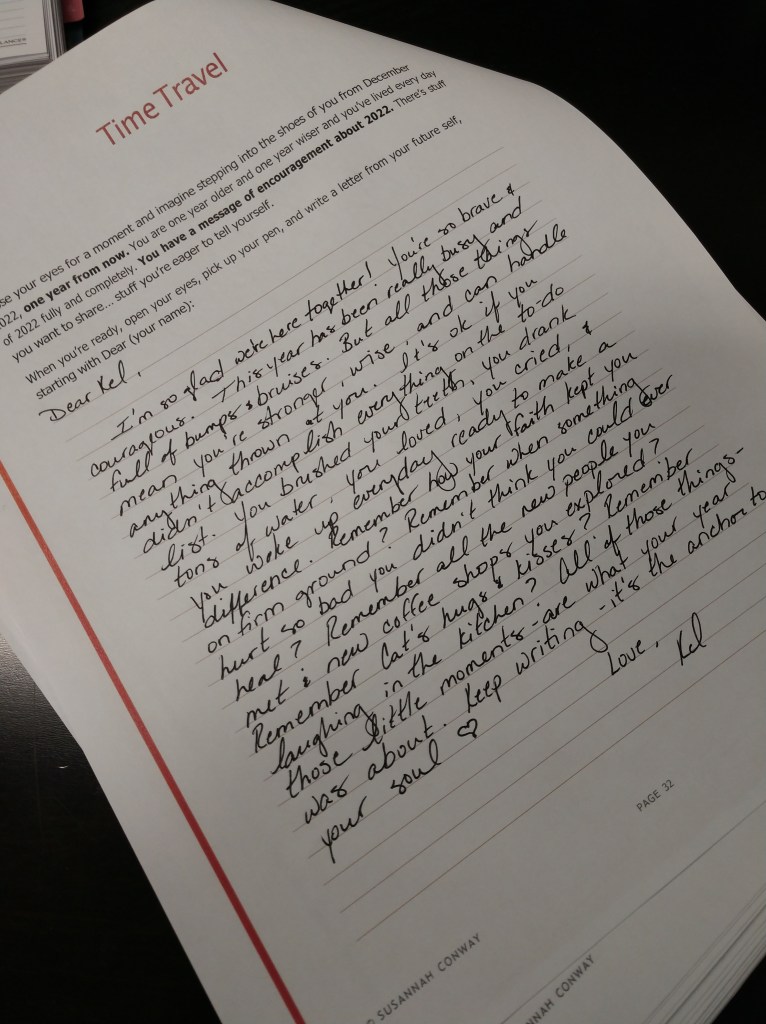 LANCER
Time Travel
ose your eyes for a moment and imagine stepping into the shoes of you from December
2022, one year from now. You are one year older and one year wiser and you've lived every day
of 2022 fully and completely. You have a message of encouragement about 2022. There's stuff
you want to share... stuff you're eager to tell yourself.
When you're ready, open your eyes, pick up your pen, and write a letter from your future self,
starting with Dear (your name):
Dear Kel,
I'm so glad we're here together! You're so brave &
courageous. This year has been really busy and
full of bumps & bruises. But all those things
mean you're stronger, wise, and can handle
anything thrown at you. It's ok if you
didn't accomplish everything on the to-do
list. You brushed your teeth, you drank
tons of water, you loved, you cried, &
you woke up everyday ready to make a
difference. Remember how your faith kept you
on firm ground? Remember when something
hurt so bad you didn't think you could ever
heal? Remember all the new people you
met & new coffee shops you explored?
Remember Cat's hugs & kisses? Remember
laughing in the kitchen? All of those things-
those little moments - are what your year
was about. Keep writing - it's the anchor to
your soul ♡
Love,
Kel
PAGE 32
© SUSANNAH CONWAY
NNAH CONWAY